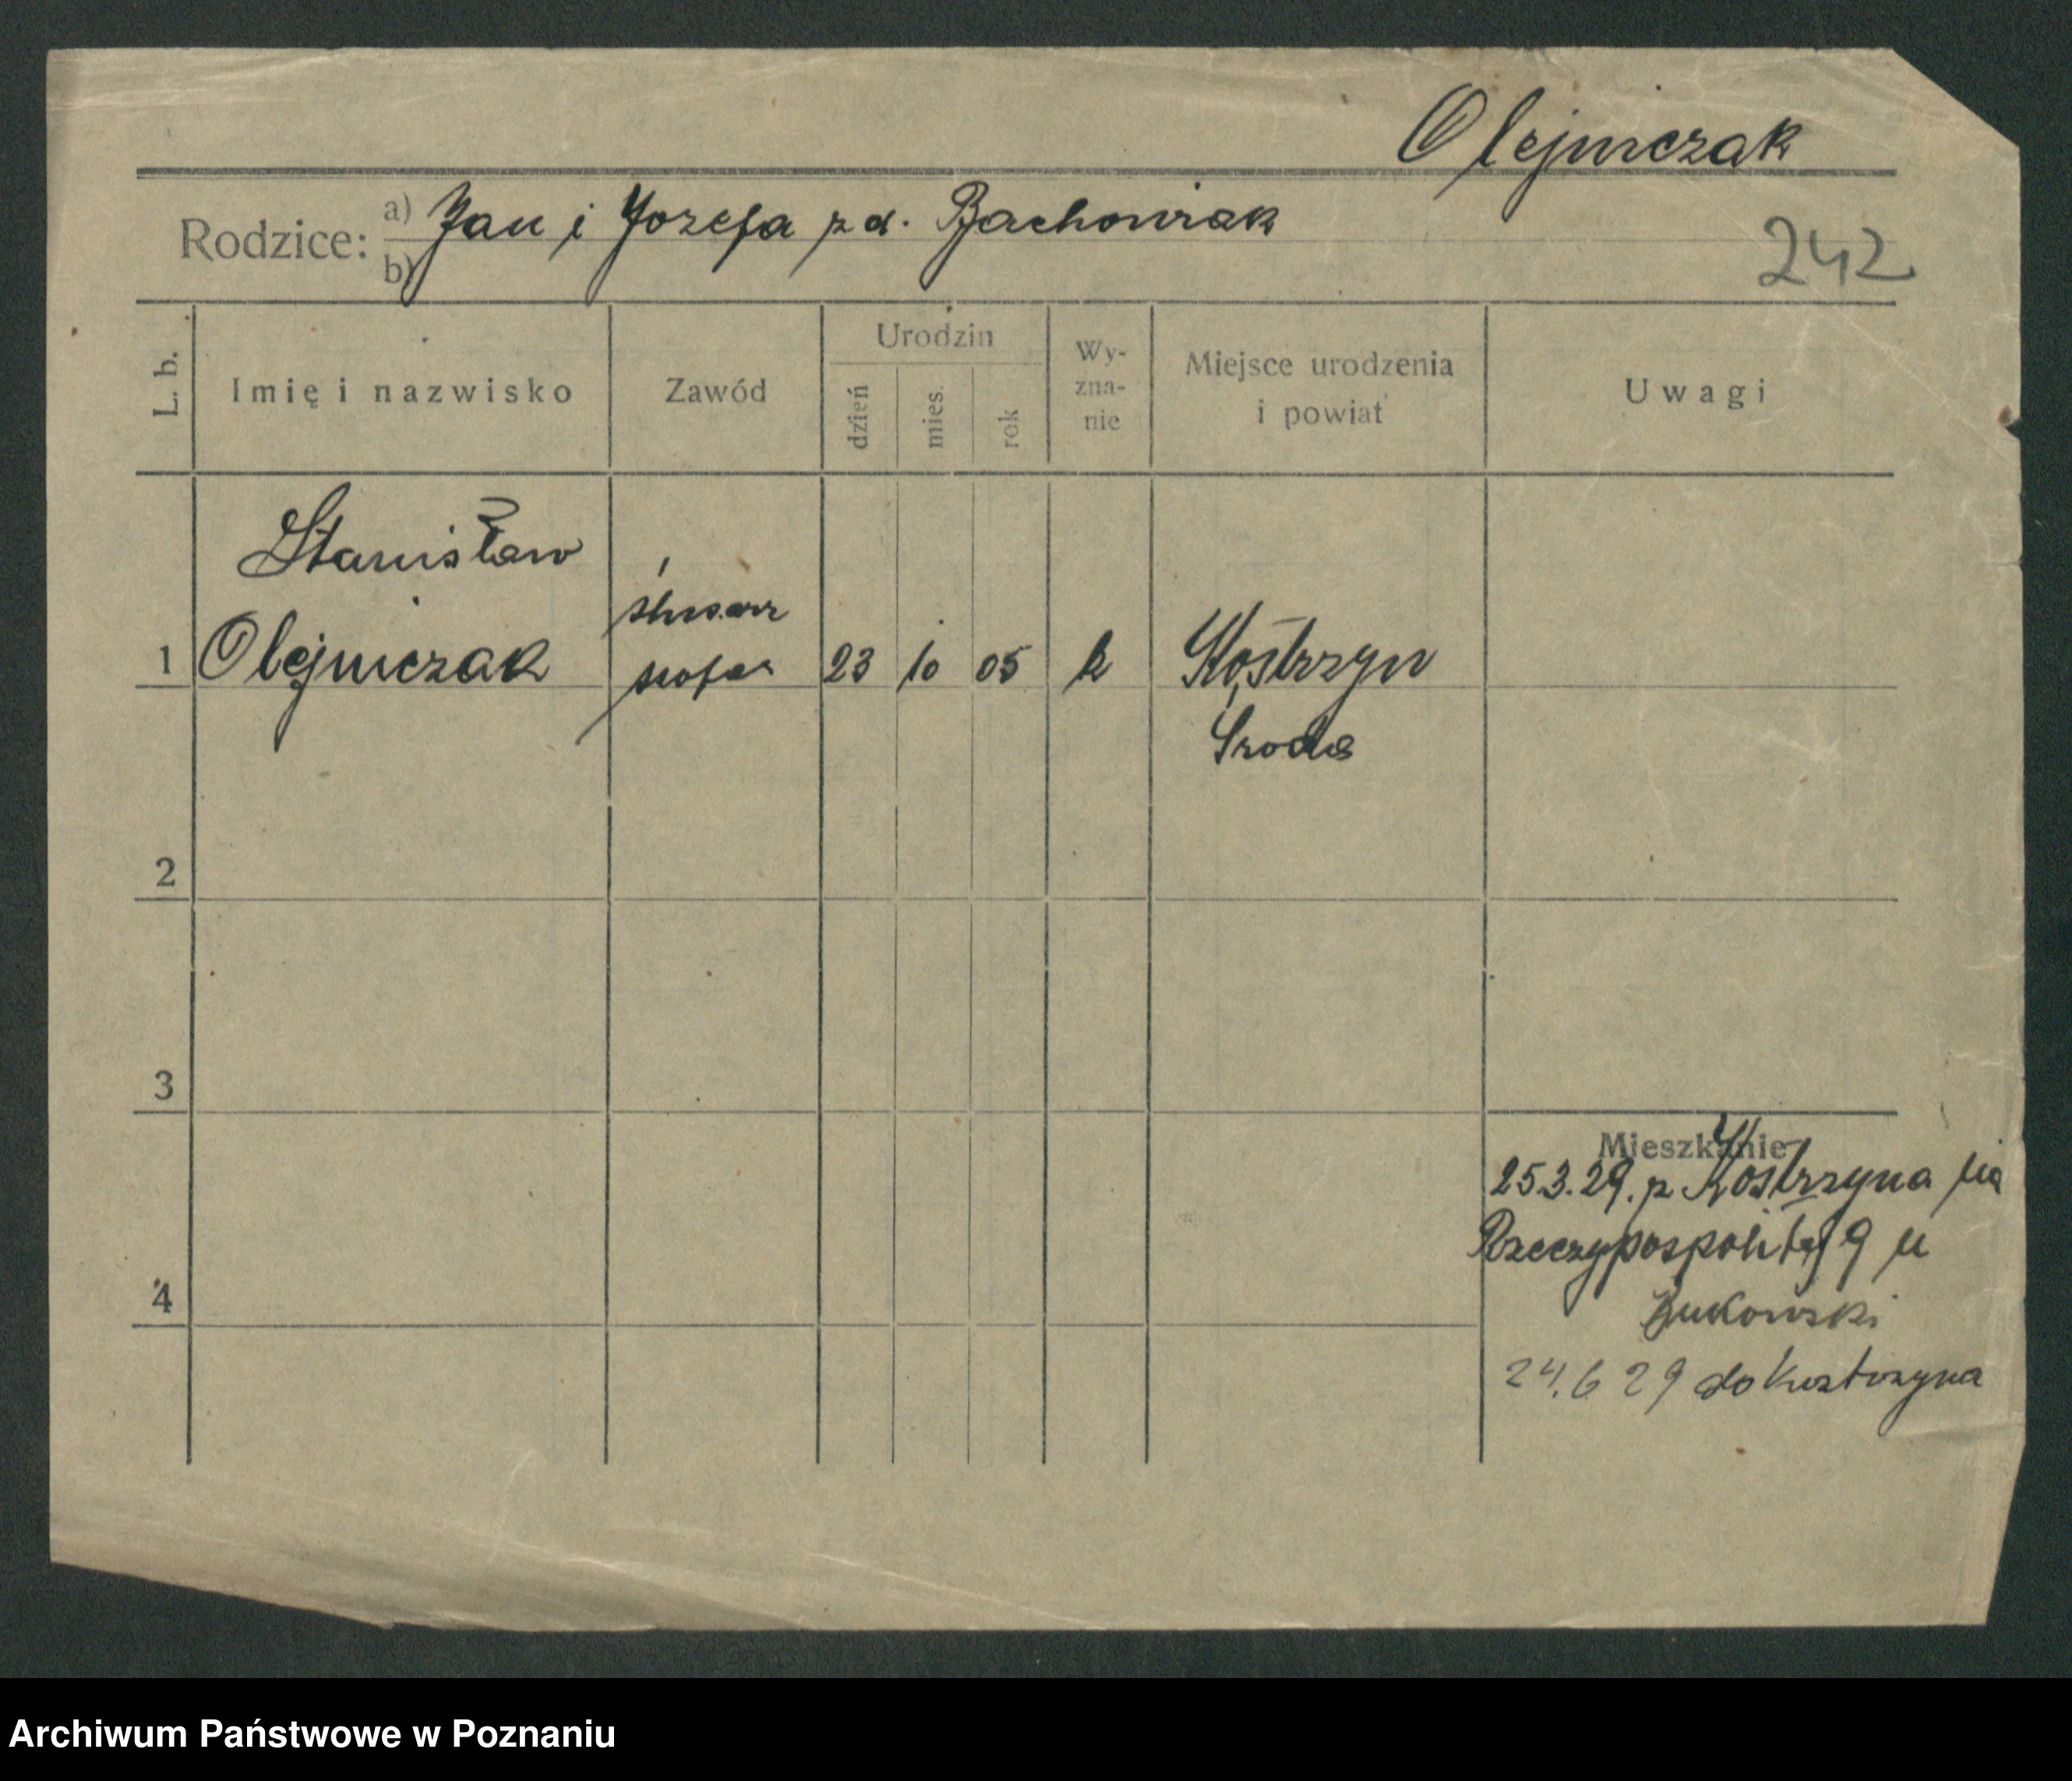 Olejniczak
Rodzice: a) Jan i Jozefa z d. Bachorniak
b)
242
L. b.
Imię i nazwisko
Zawód
Urodzin
dzień
mies.
rok
Wy-
zna-
nie
Miejsce urodzenia
i powiat
Uwagi
Stanisław
ślusarz
1 Olejniczak szofer 23 10 05 k Kostrzyn
Środa
2
3
Mieszkanie
25.3.29. z Kostrzyna
Rzeczypospolitej 9 u
Żukowski
4
24.6 29 do Kostrzyna
Archiwum Państwowe w Poznaniu